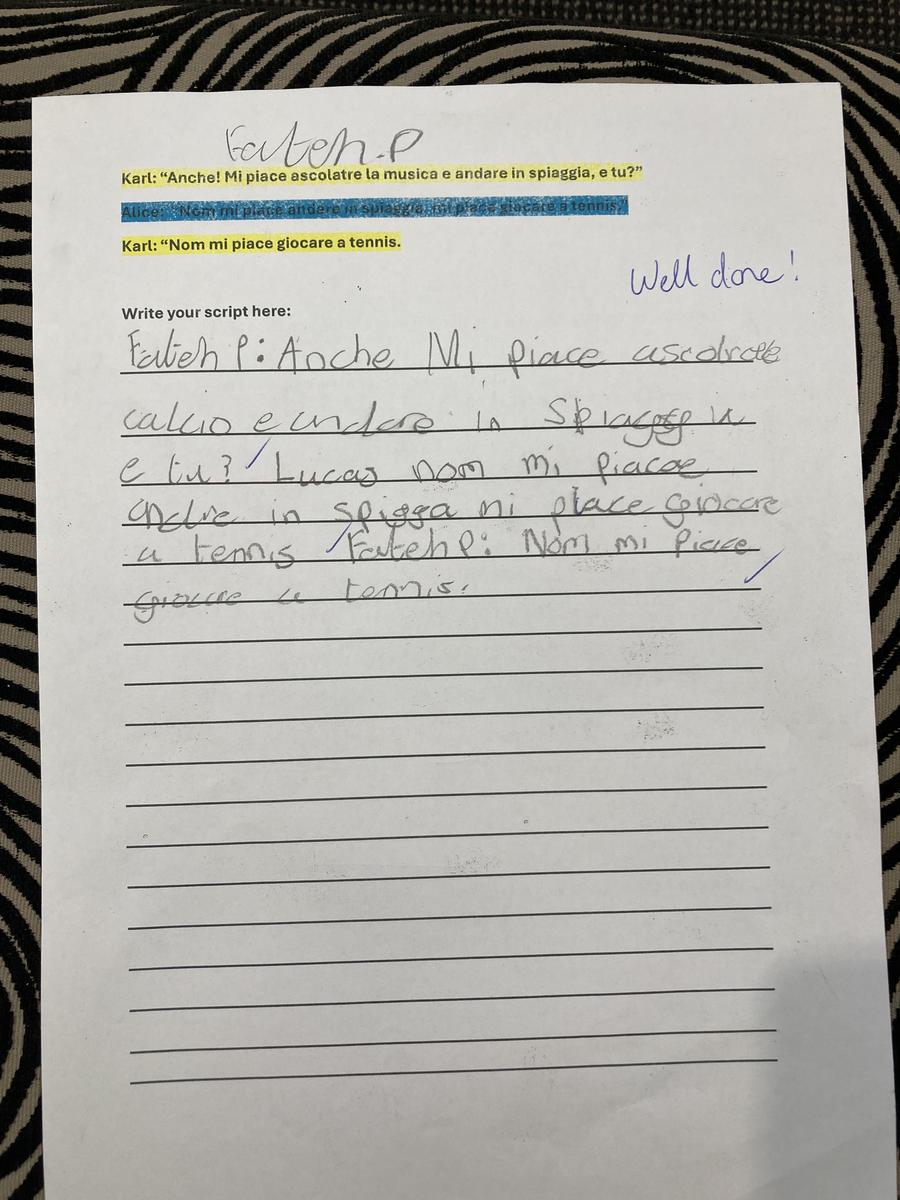 Fateh.P
Karl: “Anche! Mi piace ascolatre la musica e andare in spiaggia, e tu?”
Alice: “Nom mi piace andare in spiaggia, mi piace giocare a tennis.”
Karl: “Nom mi piace giocare a tennis.
Well done!
Write your script here:
Fateh P: Anche Mi piace ascolrate
calcio e andare in
e tu? Lucas nom mi piacae
andre in spigga mi piace giocare
a tennis Fateh P: Nom mi piace
giocare a tennis.